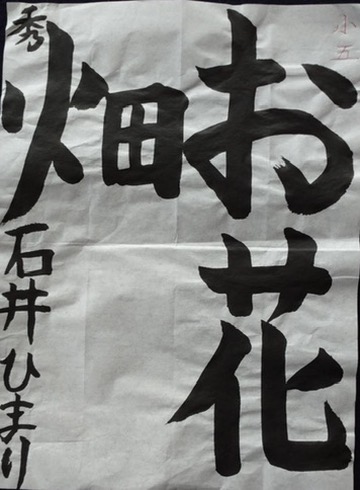 小五
お花
畑
秀
石井ひまり